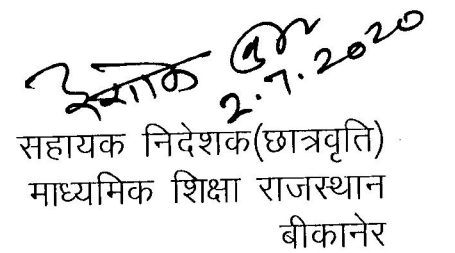 2.7.2020
सहायक निदेशक(छात्रवृति)
माध्यमिक शिक्षा राजस्थान
बीकानेर